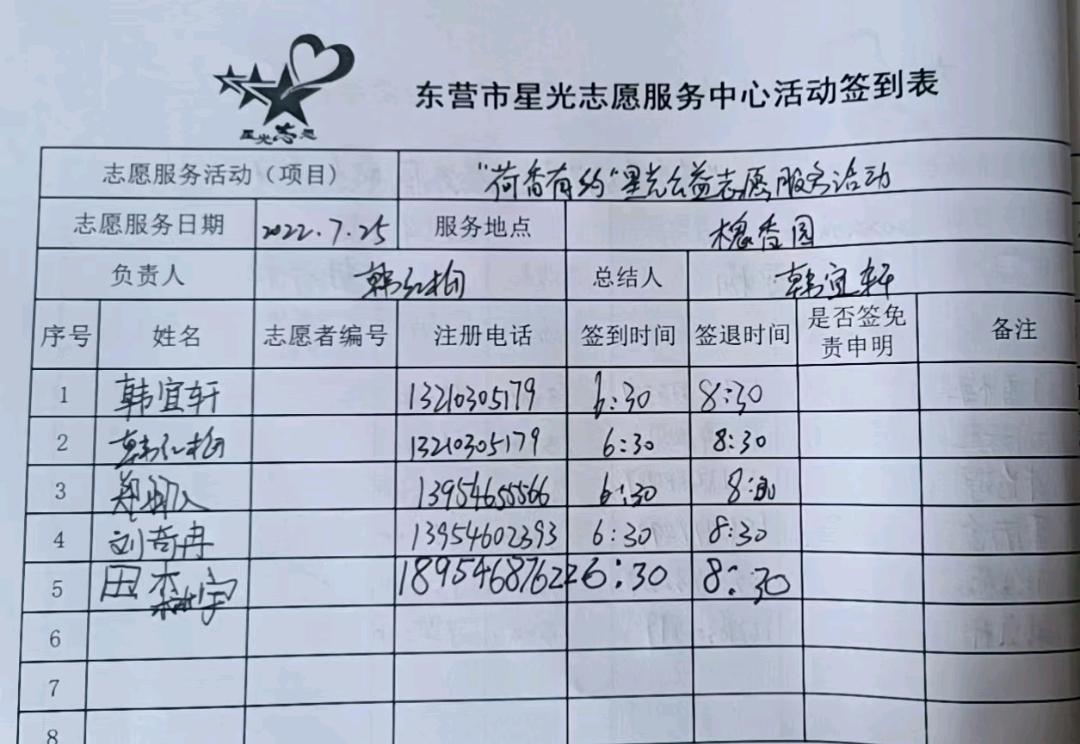 星光志愿
东营市星光志愿服务中心活动签到表
志愿服务活动（项目） "荷香有约"星光公益志愿服务活动
志愿服务日期 2022.7.25 服务地点 槐香园
负责人 韩红梅 总结人 韩宜轩
序号 姓名 志愿者编号 注册电话 签到时间 签退时间 是否签免责申明 备注
1 韩宜轩 13210305179 6:30 8:30
2 韩红梅 13210305179 6:30 8:30
3 13954655566 6:30 8:30
4 刘奇冉 13954602393 6:30 8:30
5 田森宇 18954687622 6:30 8:30
6
7
8